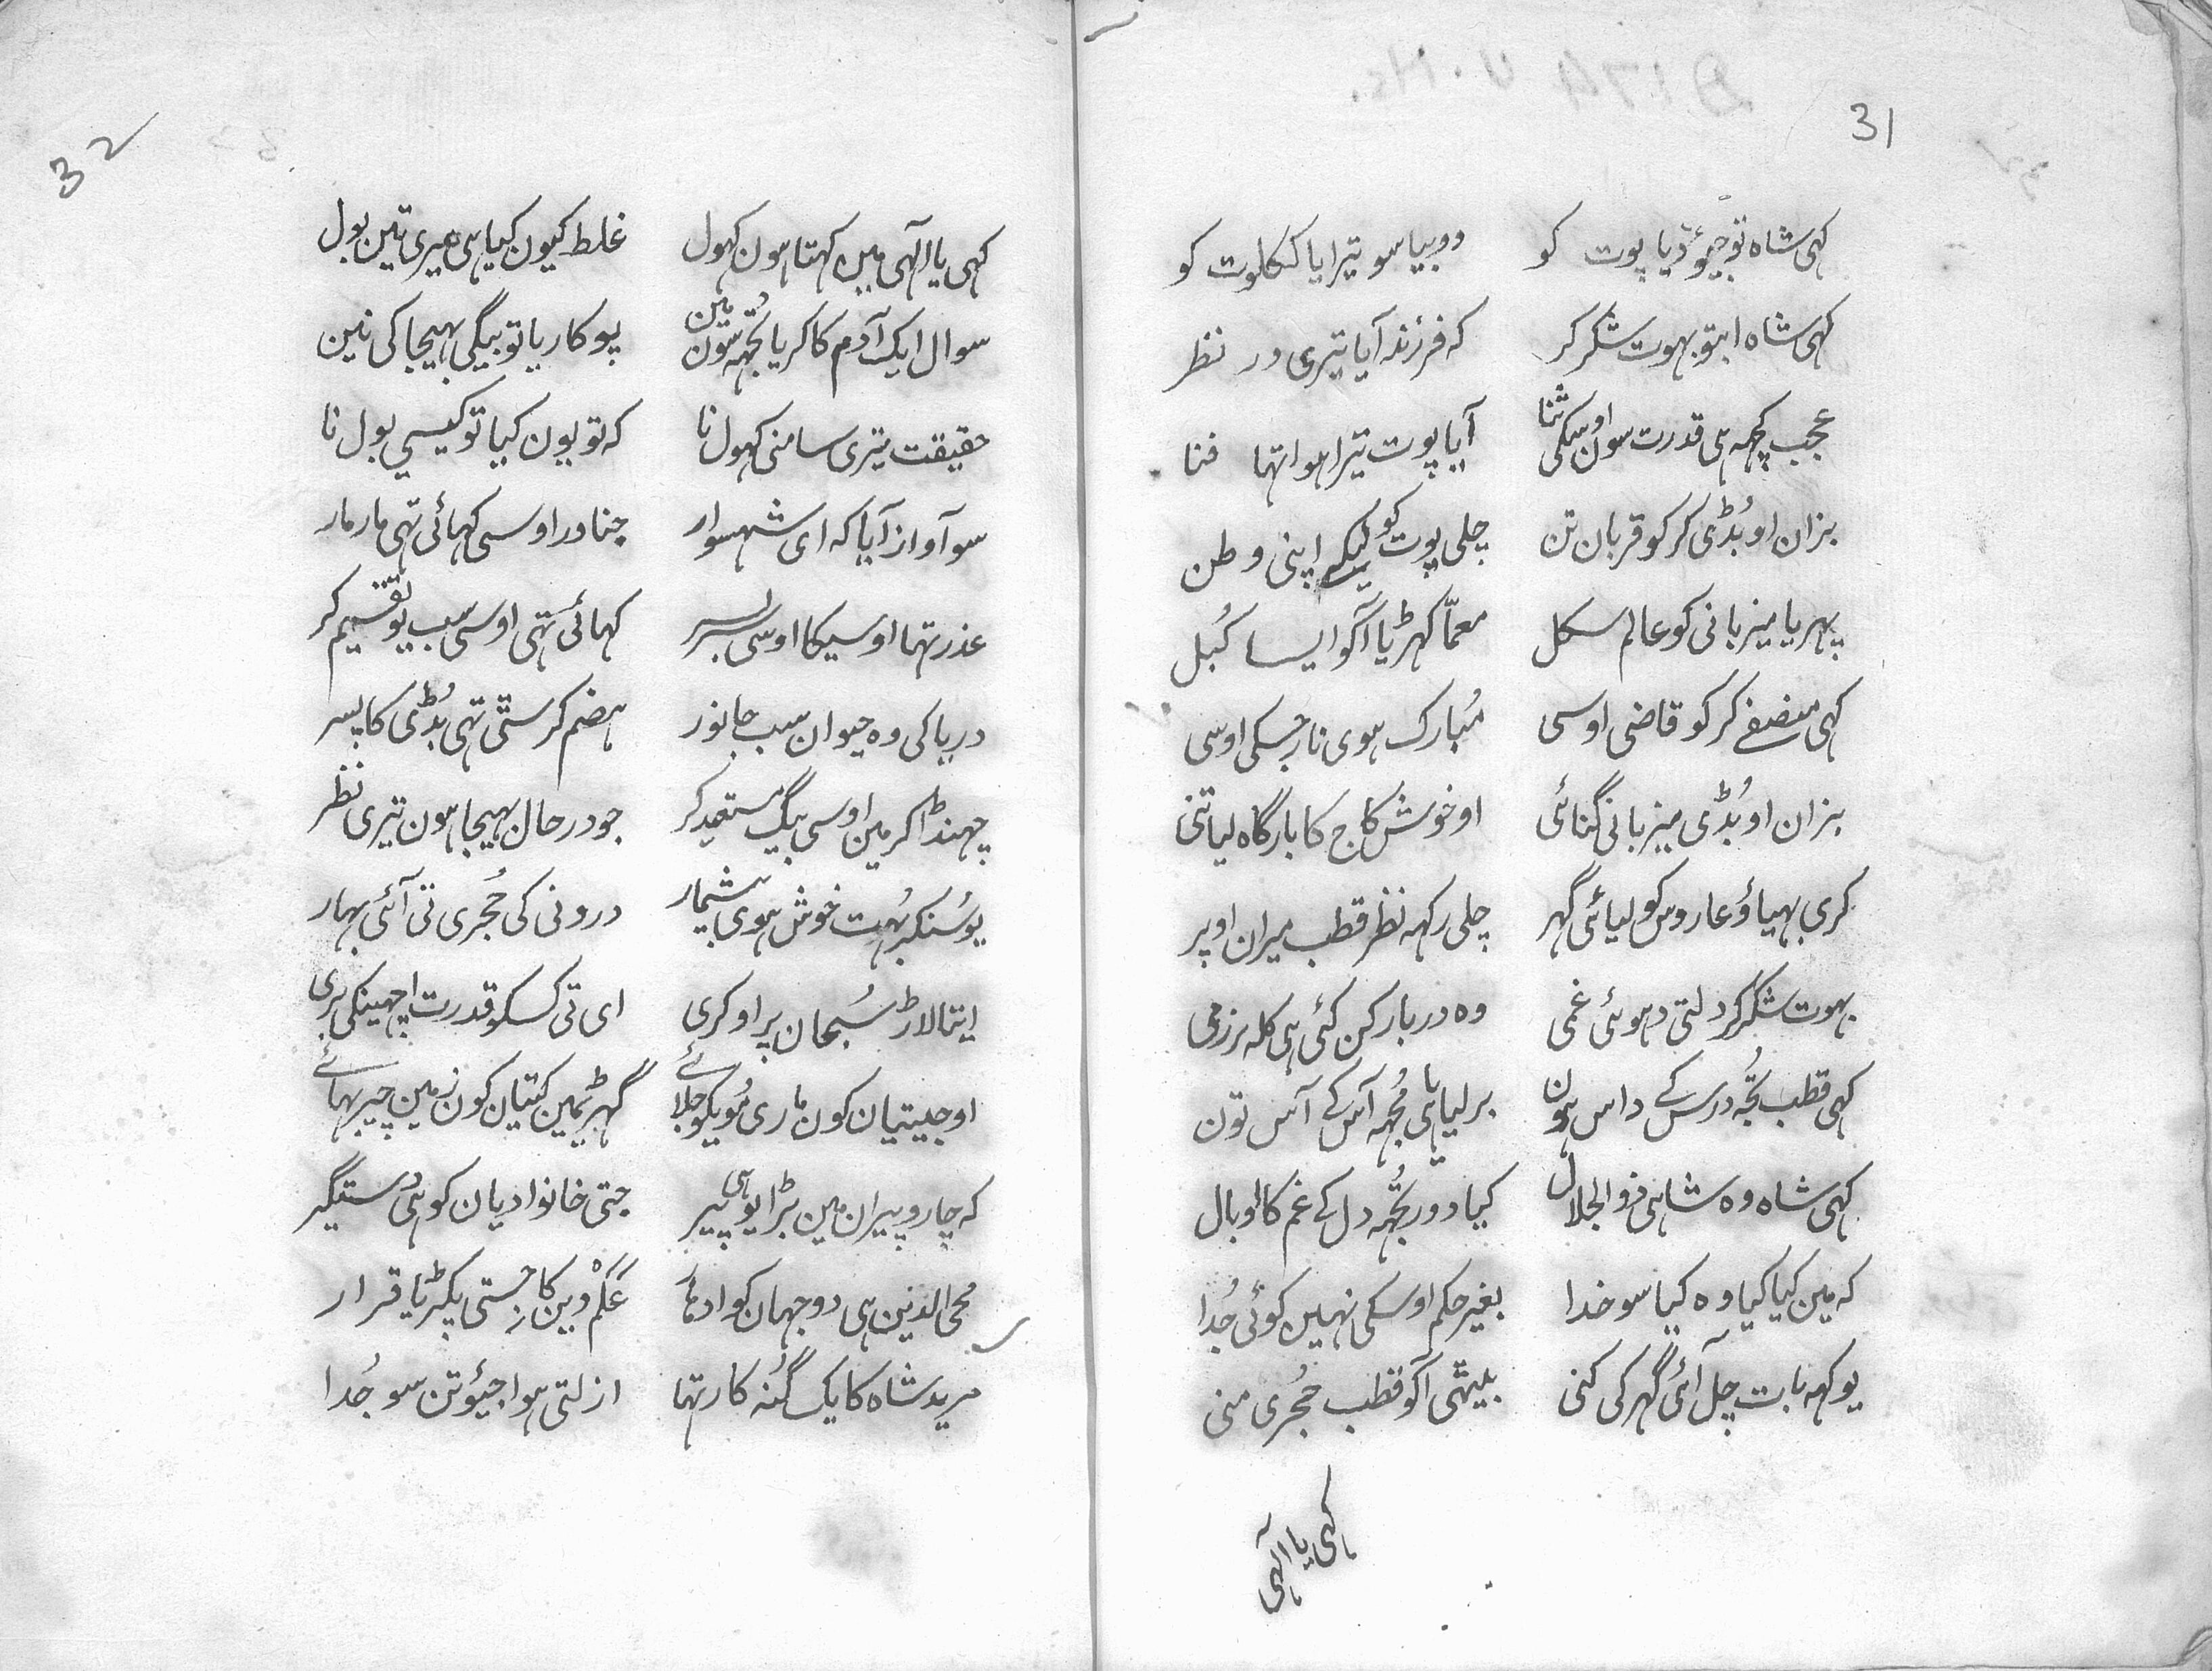 31
کہی شاہ توجیوٗ دیا پوت کو دوبیا سو تیرا یا کنکلوت کو
کہی شاہ ابتو بہوت شکر کر کہ فرزند آیا تیری در نظر
عجب کچہہ ہی قدرت سون اوسکی ثنا آیا پوت تیرا ہوا تہا فنا
بزان او بُڈی کر کو قربان تن چلی پوت کو لیکے اپنی وطن
پہریا میزبانی کو عالم سکل معمّا کہڑیا آکو ایسا کُبل
کہی منصفے کر کو قاضی اوسی مُبارک ہوی نار جسکی اوسی
بزان او بُڈی میزبانی گنائی او خوش کاج کا بارگاہ لیاتنی
کری بہیاوٗ عاروس کو لیائی گہر چلی رکہہ نظر قطب میران اوپر
بہوت شکر کر دلتی دہوئی غمی وہ دربار کن گئی ہی کلہ برزمی
کہی قطب تجُہ درس کے داس ہون بر لیایا ہی مُجہہ آس کے آس تون
کہی شاہ وہ شاہی ذوالجلال کیا دور تُجہہ دل کے غم کا اوبال
کہ مین کیا کیا وہ کیا سو خدا بغیر حکم اوسکی نہین کوئی جُدا
یو کہہ بات چل آئ گہر کی کنی بیٹہی آکو قطب حُجری منی
کہی یا الٰہی
32
کہی یا الٰہی مین کہتا ہون کہول غلط کیون کیا ہی میری تین بول
سوال ایک آدم کا کریا تُجہہ سون مین پوکاریا تو بیگی بہیجا کی نین
حقیقت تیری سامنی کہول نا کہ تو یون کیا تو کیسی بول نا
سو آواز آیا کہ ای شہسوار جناور اوسی کہائی تہی مار مار
عذر تہا اوسیکا اوسی سربسر کہائی تہی اوسی سب یو تقسیم کر
دریا کی وہ حیوان سب جانور ہضم کر ستّی تہی بُڈی کا پسر
جہنڈا کر مین اوسی بیگ مستعد کر جو در حال بہیجا ہون تیری نظر
یو سُنکر بُہت خوش ہوی بیشمار درونی کی حُجری تی آئی بہار
ایتا لاڑ سُبحان پر او کری ای تی کسکو قدرت اچہینکی بری
اوجیتیان کون ماری مُویکو جلائے گہڑیمین کتیان کون زمین چیر بہائے
کہ چارو پیران مین بڑا یو ہی پیر جتی خانوادیان کو ہی دستگیر
محی الدین ہی دو جہان کو ادہار عَلَمْ دین کا جستی پکڑیا قرار
مرید شاہ کا یک گُنہ کار تہا ازلتی ہوا جیوٗ تن سو جُدا